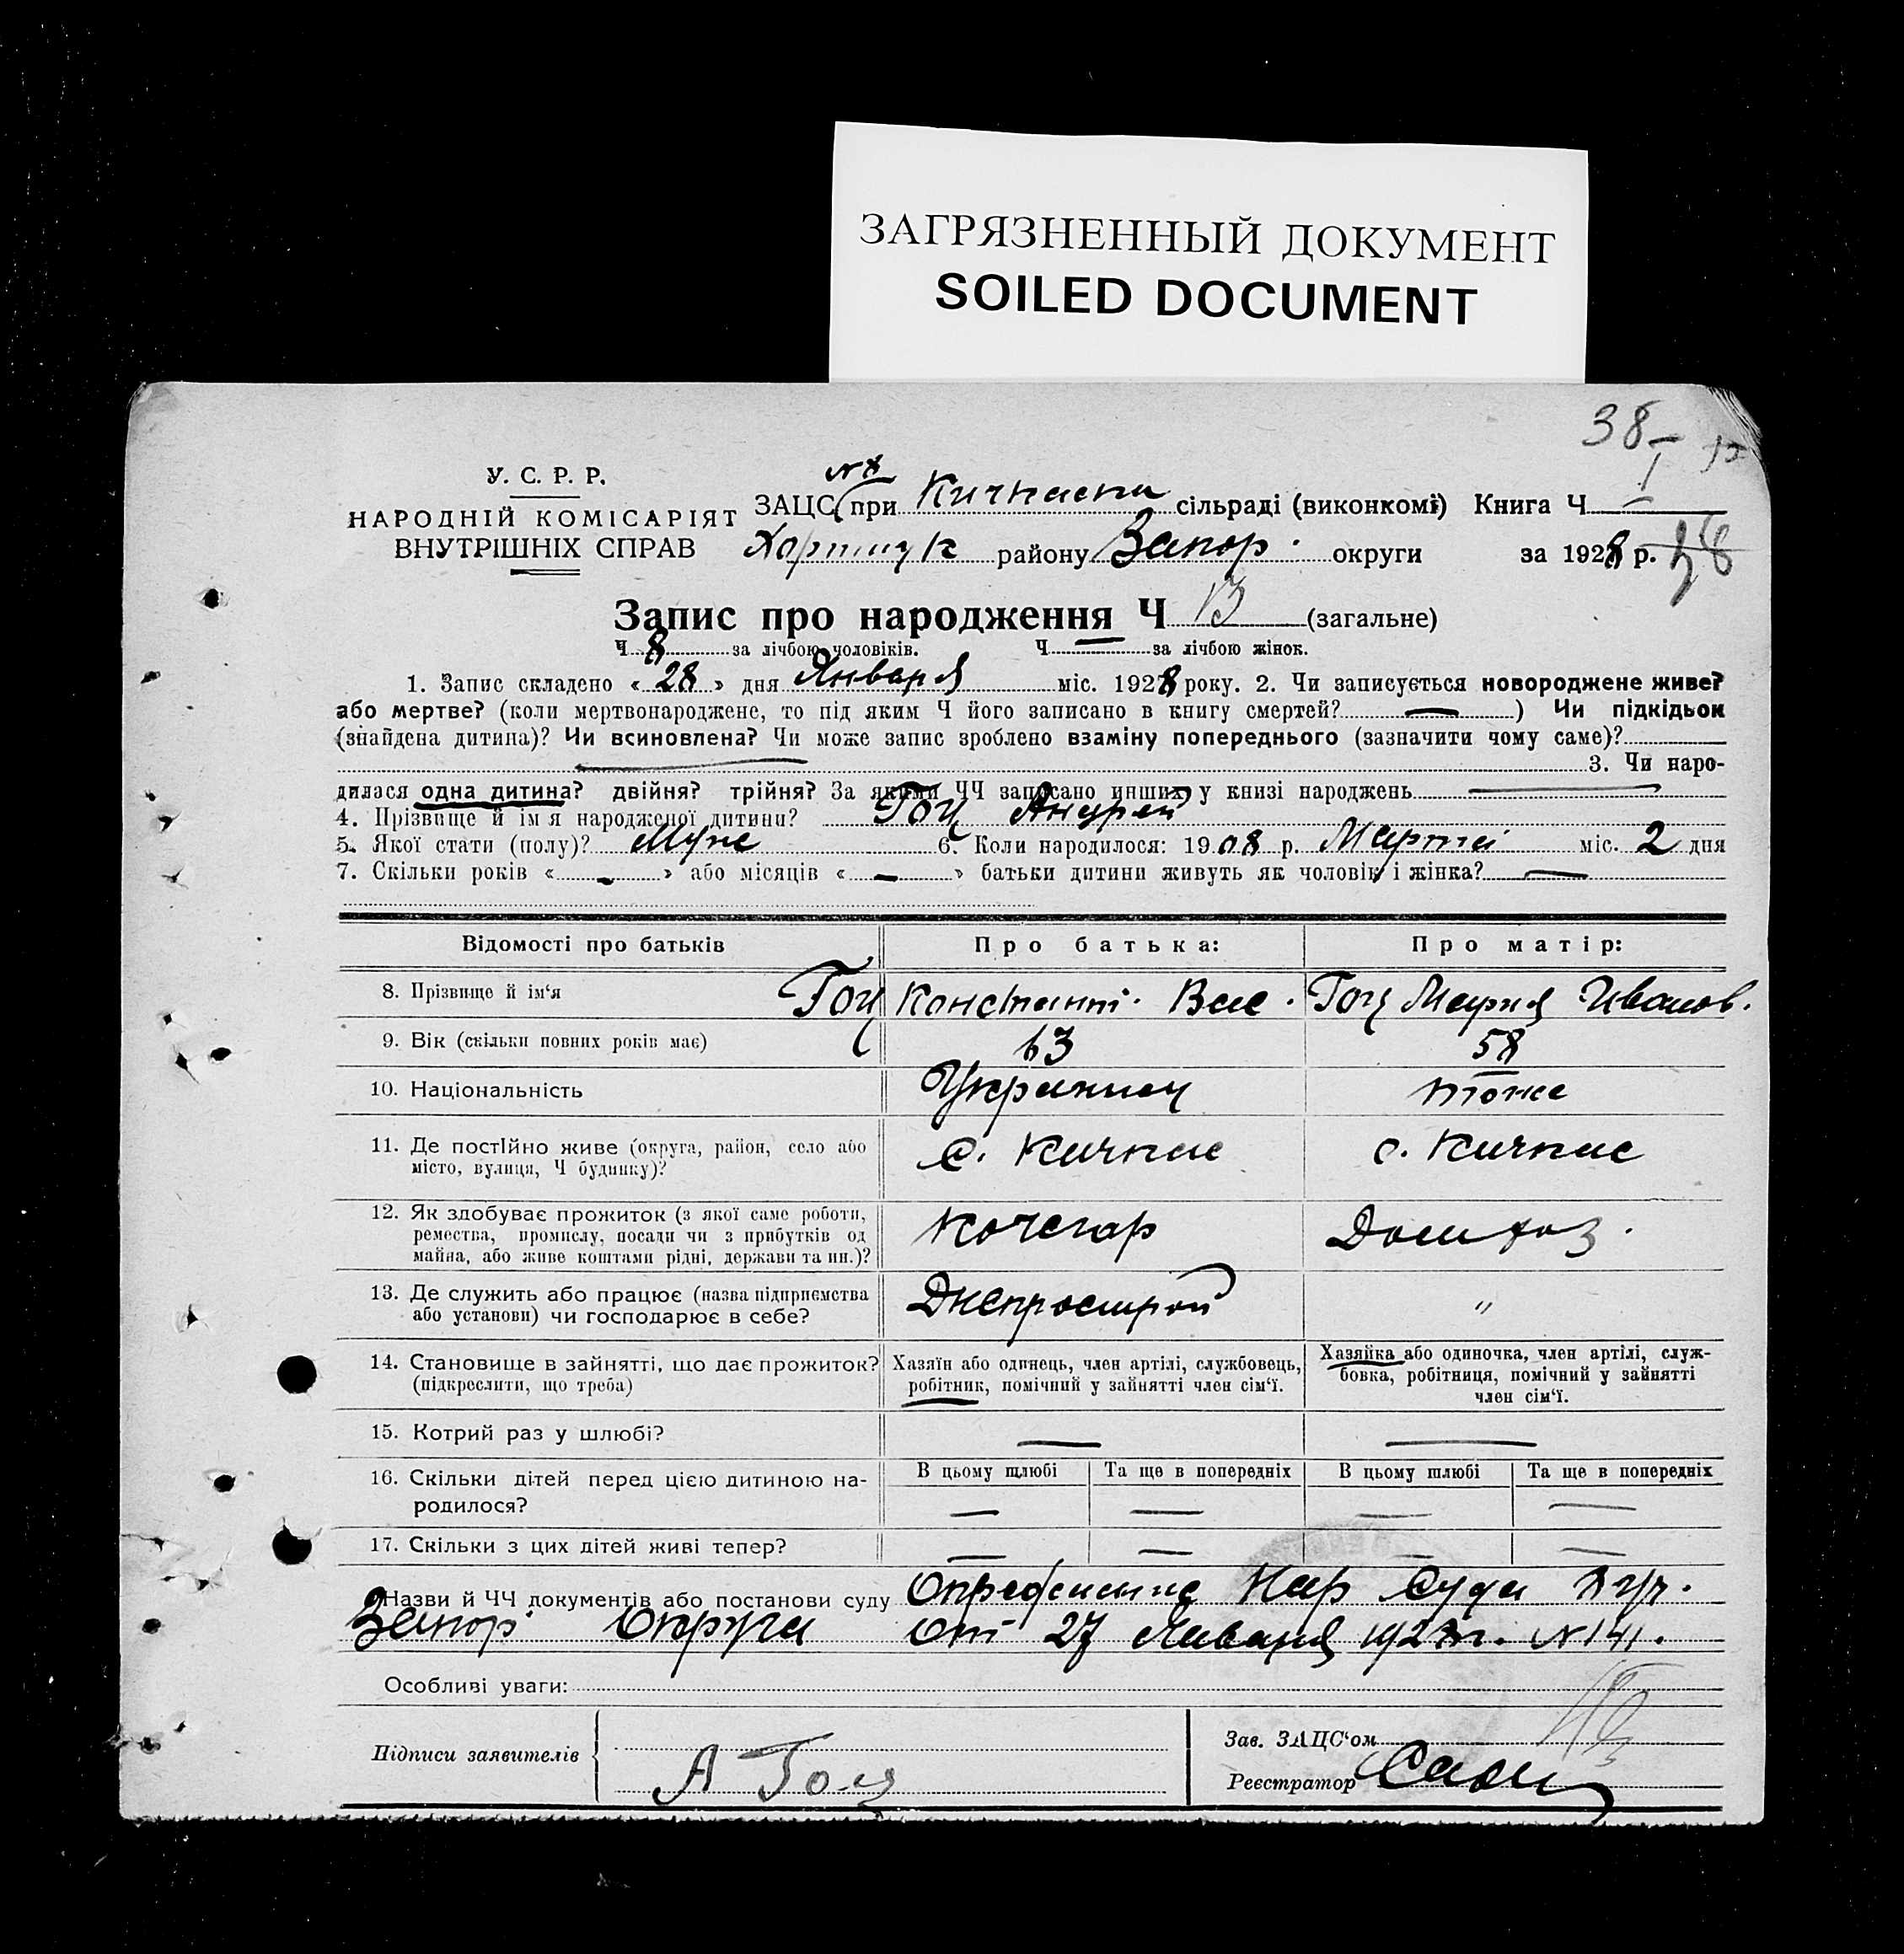 ЗАГРЯЗНЕННЫЙ ДОКУМЕНТ
SOILED DOCUMENT
38
У. С. Р. Р.
НАРОДНІЙ КОМІСАРІЯТ
ВНУТРІШНІХ СПРАВ
№ 8
ЗАЦС (при Кичкаска сільраді (виконкомі) Книга Ч I
Хортицьк району Запор. округи за 1928 р. 38
Запис про народження Ч 13 (загальне)
Ч 8 за лічбою чоловіків. Ч — за лічбою жінок.
1. Запис складено « 28 » дня Января міс. 1928 року. 2. Чи записується новороджене живе?
або мертве? (коли мертвонароджене, то під яким Ч його записано в книгу смертей? — ) Чи підкідьок
(знайдена дитина)? Чи всиновлена? Чи може запис зроблено взаміну попереднього (зазначити чому саме)?
3. Чи наро-
дилася одна дитина? двійня? трійня? За якими ЧЧ записано инших у книзі народжень —
4. Прізвище й ім'я народженої дитини? Гоц Андрей
5. Якої стати (полу)? Муже 6. Коли народилося: 1908 р. Марта міс. 2 дня
7. Скільки років « — » або місяців « — » батьки дитини живуть як чоловік і жінка? —
Відомості про батьків Про батька: Про матір:
8. Прізвище й ім'я Гоц Константі. Вас. Гоц Мария Иванов.
9. Вік (скільки повних років має) 63 58
10. Національність Украинец тоже
11. Де постійно живе (округа, район, село або
місто, вулиця, Ч будинку)? с. Кичкас с. Кичкас
12. Як здобуває прожиток (з якої саме роботи,
ремества, промислу, посади чи з прибутків од
майна, або живе коштами рідні, держави та ин.)? Кочегар Домхоз.
13. Де служить або працює (назва підприємства
або установи) чи господарює в себе? Днепрострой "
14. Становище в зайнятті, що дає прожиток?
(підкреслити, що треба)
Хазяїн або одинець, член артілі, службовець,
робітник, помічний у зайнятті член сім'ї.
Хазяйка або одиночка, член артілі, служ-
бовка, робітниця, помічний у зайнятті
член сім'ї.
15. Котрий раз у шлюбі? — —
16. Скільки дітей перед цією дитиною на-
родилося?
В цьому шлюбі Та ще в попередніх В цьому шлюбі Та ще в попередніх
— — — —
17. Скільки з цих дітей живі тепер? — — — —
Назви й ЧЧ документів або постанови суду Определение Нар Суда
Запор Округа От 27 Января 1928 г. № 141.
Особливі уваги:
Підписи заявителів
А Гоц
Зав. ЗАЦС'ом
Реєстратор